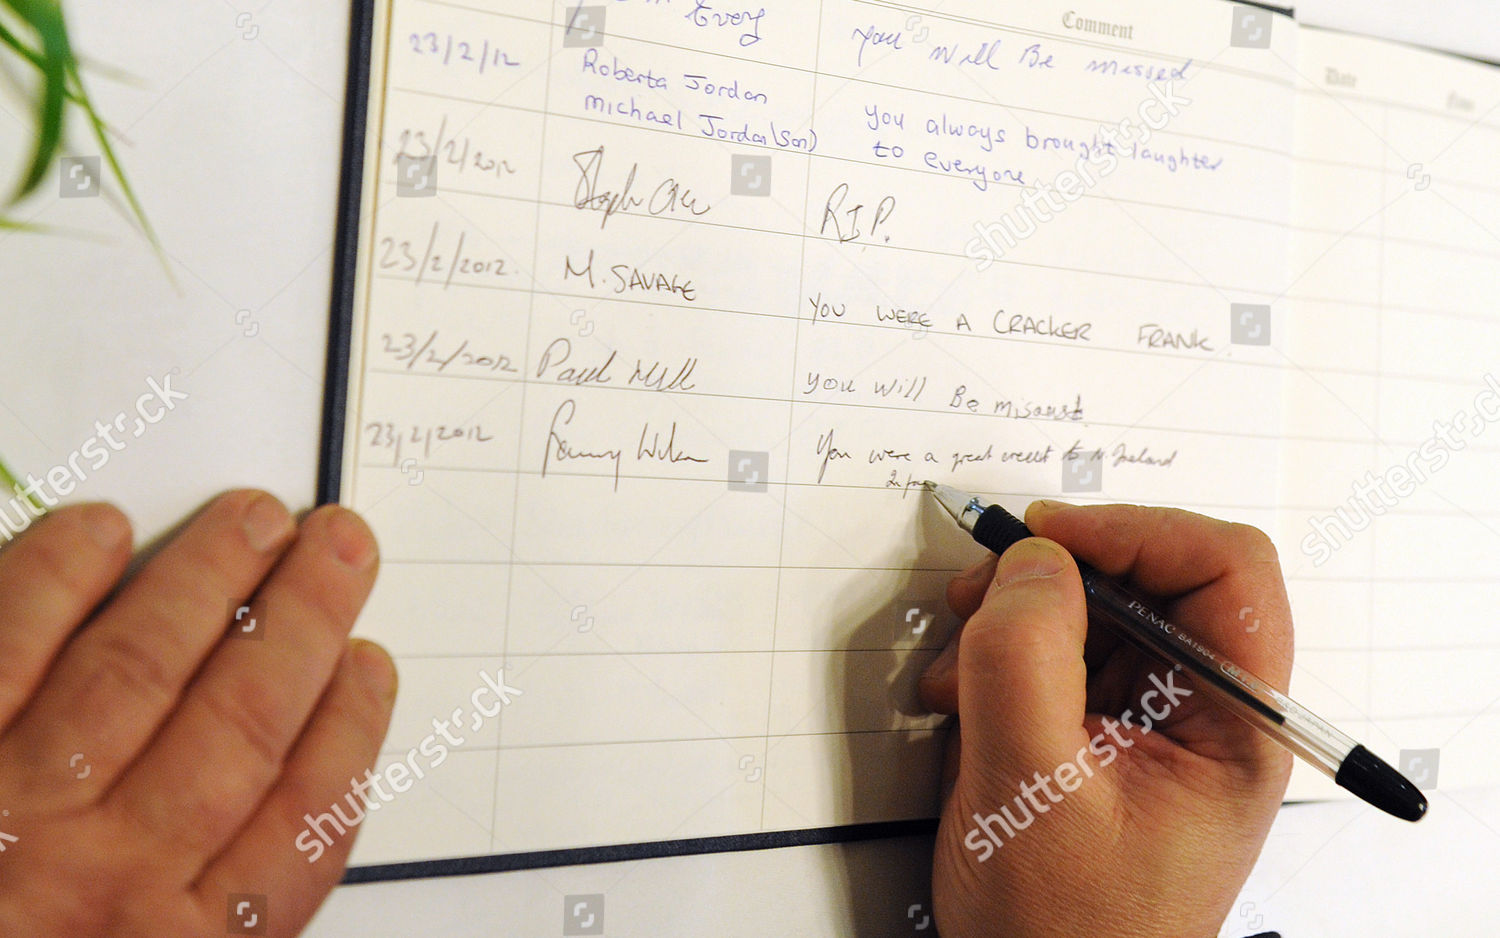 Comment
Every
You Will Be missed
23/2/12
Roberta Jordan
michael Jordan (Son)
You always brought laughter
to everyone
23/2/2012
R.I.P.
23/2/2012.
M. SAVAGE
YOU WERE A CRACKER FRANK.
23/2/2012
Paul
you will Be
23/2/2012
You were a great to N. Ireland
Date
PENAC BA1904
shutterstock
shutterstock
shutterstock
shutterstock
shutterstock
shutterstock